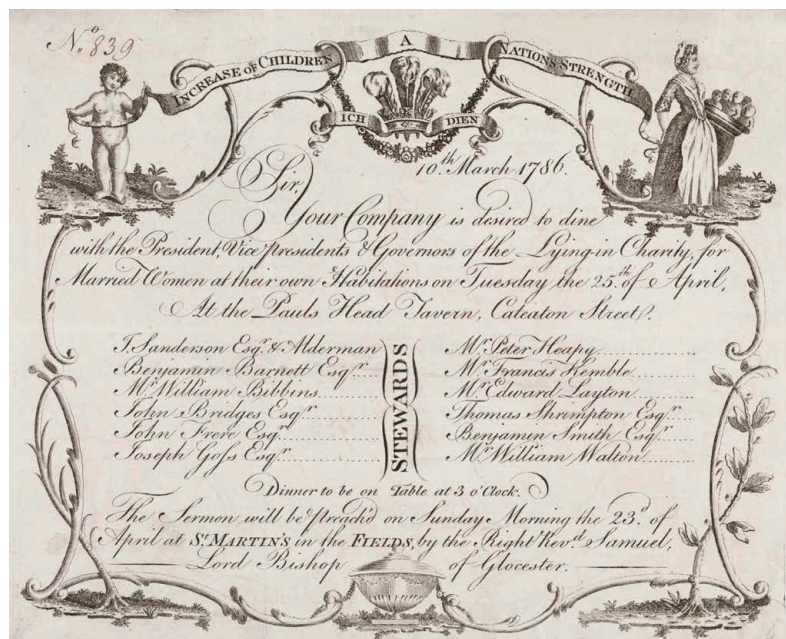 No. 839
INCREASE OF CHILDREN A NATIONS STRENGTH
ICH DIEN
10.th March 1786.
Sir,
Your Company is desired to dine
with the President, Vice presidents & Governors of the Lying-in Charity, for
Married Women at their own Habitations on Tuesday the 25.th of April,
At the Pauls Head Tavern, Cateaton Street.
J. Sanderson Esqr. & Alderman
Benjamin Barnett Esqr.
Mr. William Bibbins
John Bridges Esqr.
John Frere Esqr.
Joseph Goss Esqr.
STEWARDS
Mr. Peter Heapy
Mr. Francis Kemble
Mr. Edward Layton
Thomas Shrimpton Esqr.
Benjamin Smith Esqr.
Mr. William Walton
Dinner to be on Table at 3 o'Clock.
The Sermon will be preach'd on Sunday Morning the 23.d of
April at St. MARTIN'S in the FIELDS, by the Right Revd. Samuel,
Lord Bishop of Glocester.